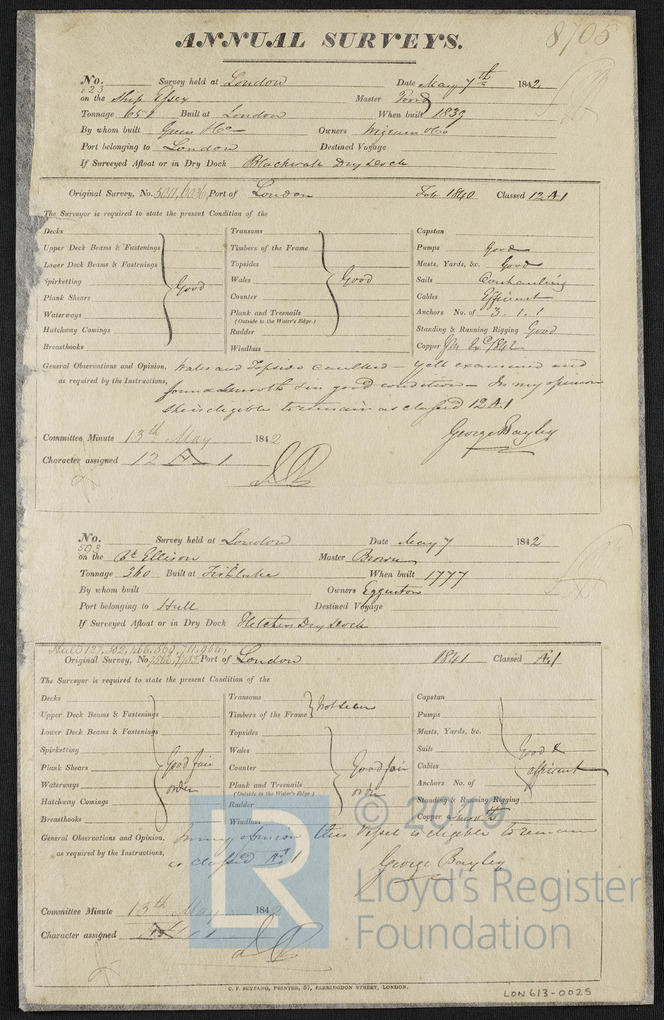 ANNUAL SURVEYS.
8705
No. 623 Survey held at London Date May 7th 1842
on the Ship Essex Master
Tonnage 651 Built at London When built 1839
By whom built Green & Co Owners Wigram & Co
Port belonging to London Destined Voyage
If Surveyed Afloat or in Dry Dock Blackwall Dry Dock
Original Survey, No. Port of London Feb. 1840 Classed 12 A 1
The Surveyor is required to state the present Condition of the
Decks Transoms Capstan
Upper Deck Beams & Fastenings Timbers of the Frame Pumps good
Lower Deck Beams & Fastenings Topsides Masts, Yards, &c. Good
Spirketting Good Wales Good Sails Overhauling
Plank Shears Counter Cables Efficient
Waterways Plank and Treenails Anchors No. of 3. 1. 1
(Outside to the Water's Edge.)
Hatchway Comings Rudder Standing & Running Rigging Good
Breasthooks Windlass Copper 1842
General Observations and Opinion, Wales and Topsides caulked - examined and
as required by the Instructions, found smooth & in good condition - In my opinion
She is eligible to remain as classed 12 A 1
George Bayley
Committee Minute 13th May 1842
Character assigned 12 A 1
No. 503 Survey held at London Date May 7 1842
on the Bk Ellison Master Brown
Tonnage 360 Built at Fishlake When built 1777
By whom built Owners Egginton
Port belonging to Hull Destined Voyage
If Surveyed Afloat or in Dry Dock Fletchers Dry Dock
Original Survey, No. Port of London 1841 Classed Æ 1
The Surveyor is required to state the present Condition of the
Decks Transoms Not seen Capstan
Upper Deck Beams & Fastenings Timbers of the Frame Pumps
Lower Deck Beams & Fastenings Topsides Masts, Yards, &c.
Spirketting Wales Sails Good &
Plank Shears Good fair Counter Good fair Cables efficient
Waterways order Plank and Treenails order Anchors No. of
(Outside to the Water's Edge.)
Hatchway Comings Rudder Standing & Running Rigging
Breasthooks Windlass Copper
General Observations and Opinion, In my opinion this vessel is eligible to remain
as required by the Instructions, as classed Æ 1
George Bayley
Committee Minute 13th May 184
Character assigned Æ 1
LR © 2046 Lloyd's Register
Foundation
C. F. SEYFANG, PRINTER, 57, FARRINGDON STREET, LONDON.
LON613-0025